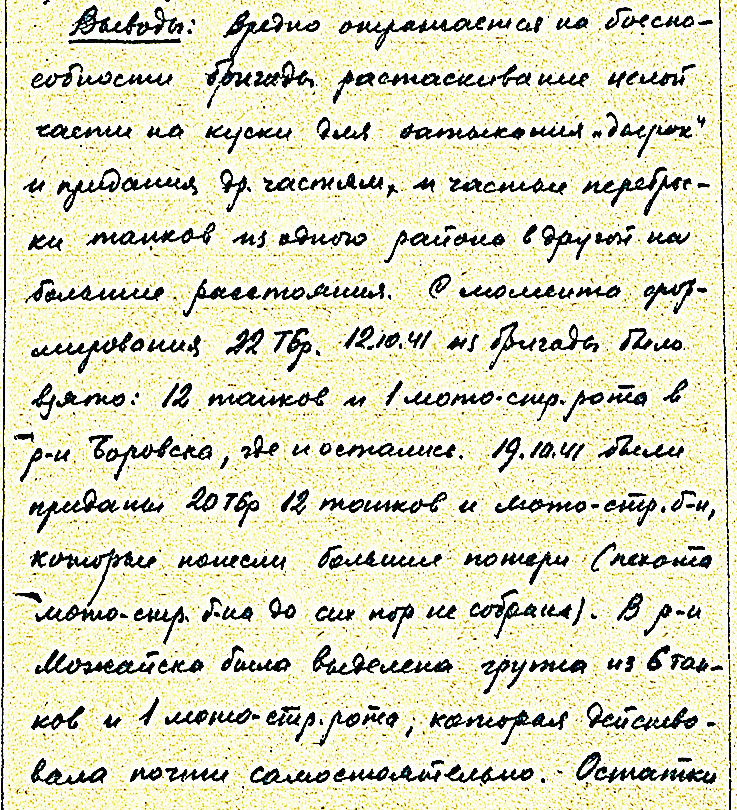 Выводы: Вредно отражается на боеспо-
собности бригады растаскивание целой
части на куски для затыкания "дырок"
и придания др. частям, и частые переброс-
ки танков из одного района в другой на
большие расстояния. С момента фор-
мирования 22 ТБр. 12.10.41 из бригады было
взято: 12 танков и 1 мото-стр. рота в
р-н Боровска, где и остались. 19.10.41 были
приданы 20 ТБр 12 танков и мото-стр. б-н,
которые понесли большие потери (пехота
мото-стр. б-на до сих пор не собрана). В р-н
Можайска была выделена группа из 6 тан-
ков и 1 мото-стр. рота, которая действо-
вала почти самостоятельно. - Остатки